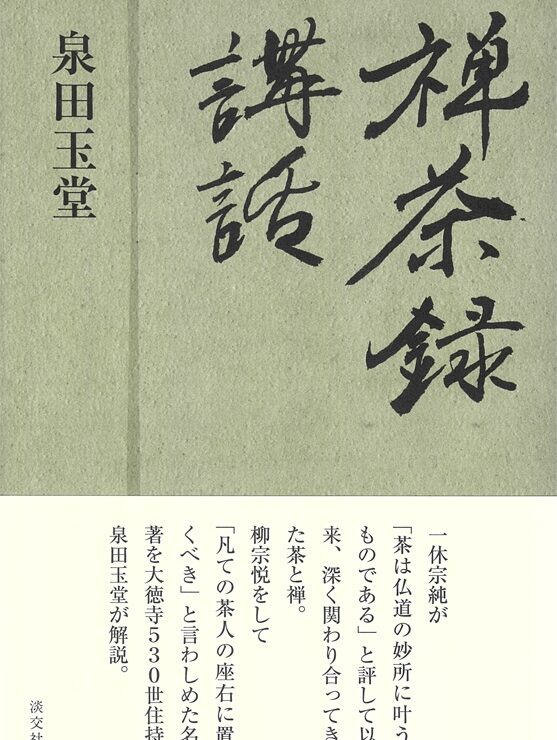 禅茶録
講話
泉田玉堂
一休宗純が
「茶は仏道の妙所に叶う
ものである」と評して以
来、深く関わり合ってき
た茶と禅。
柳宗悦をして
「凡ての茶人の座右に置
くべき」と言わしめた名
著を大徳寺530世住持
泉田玉堂が解説。
淡交社